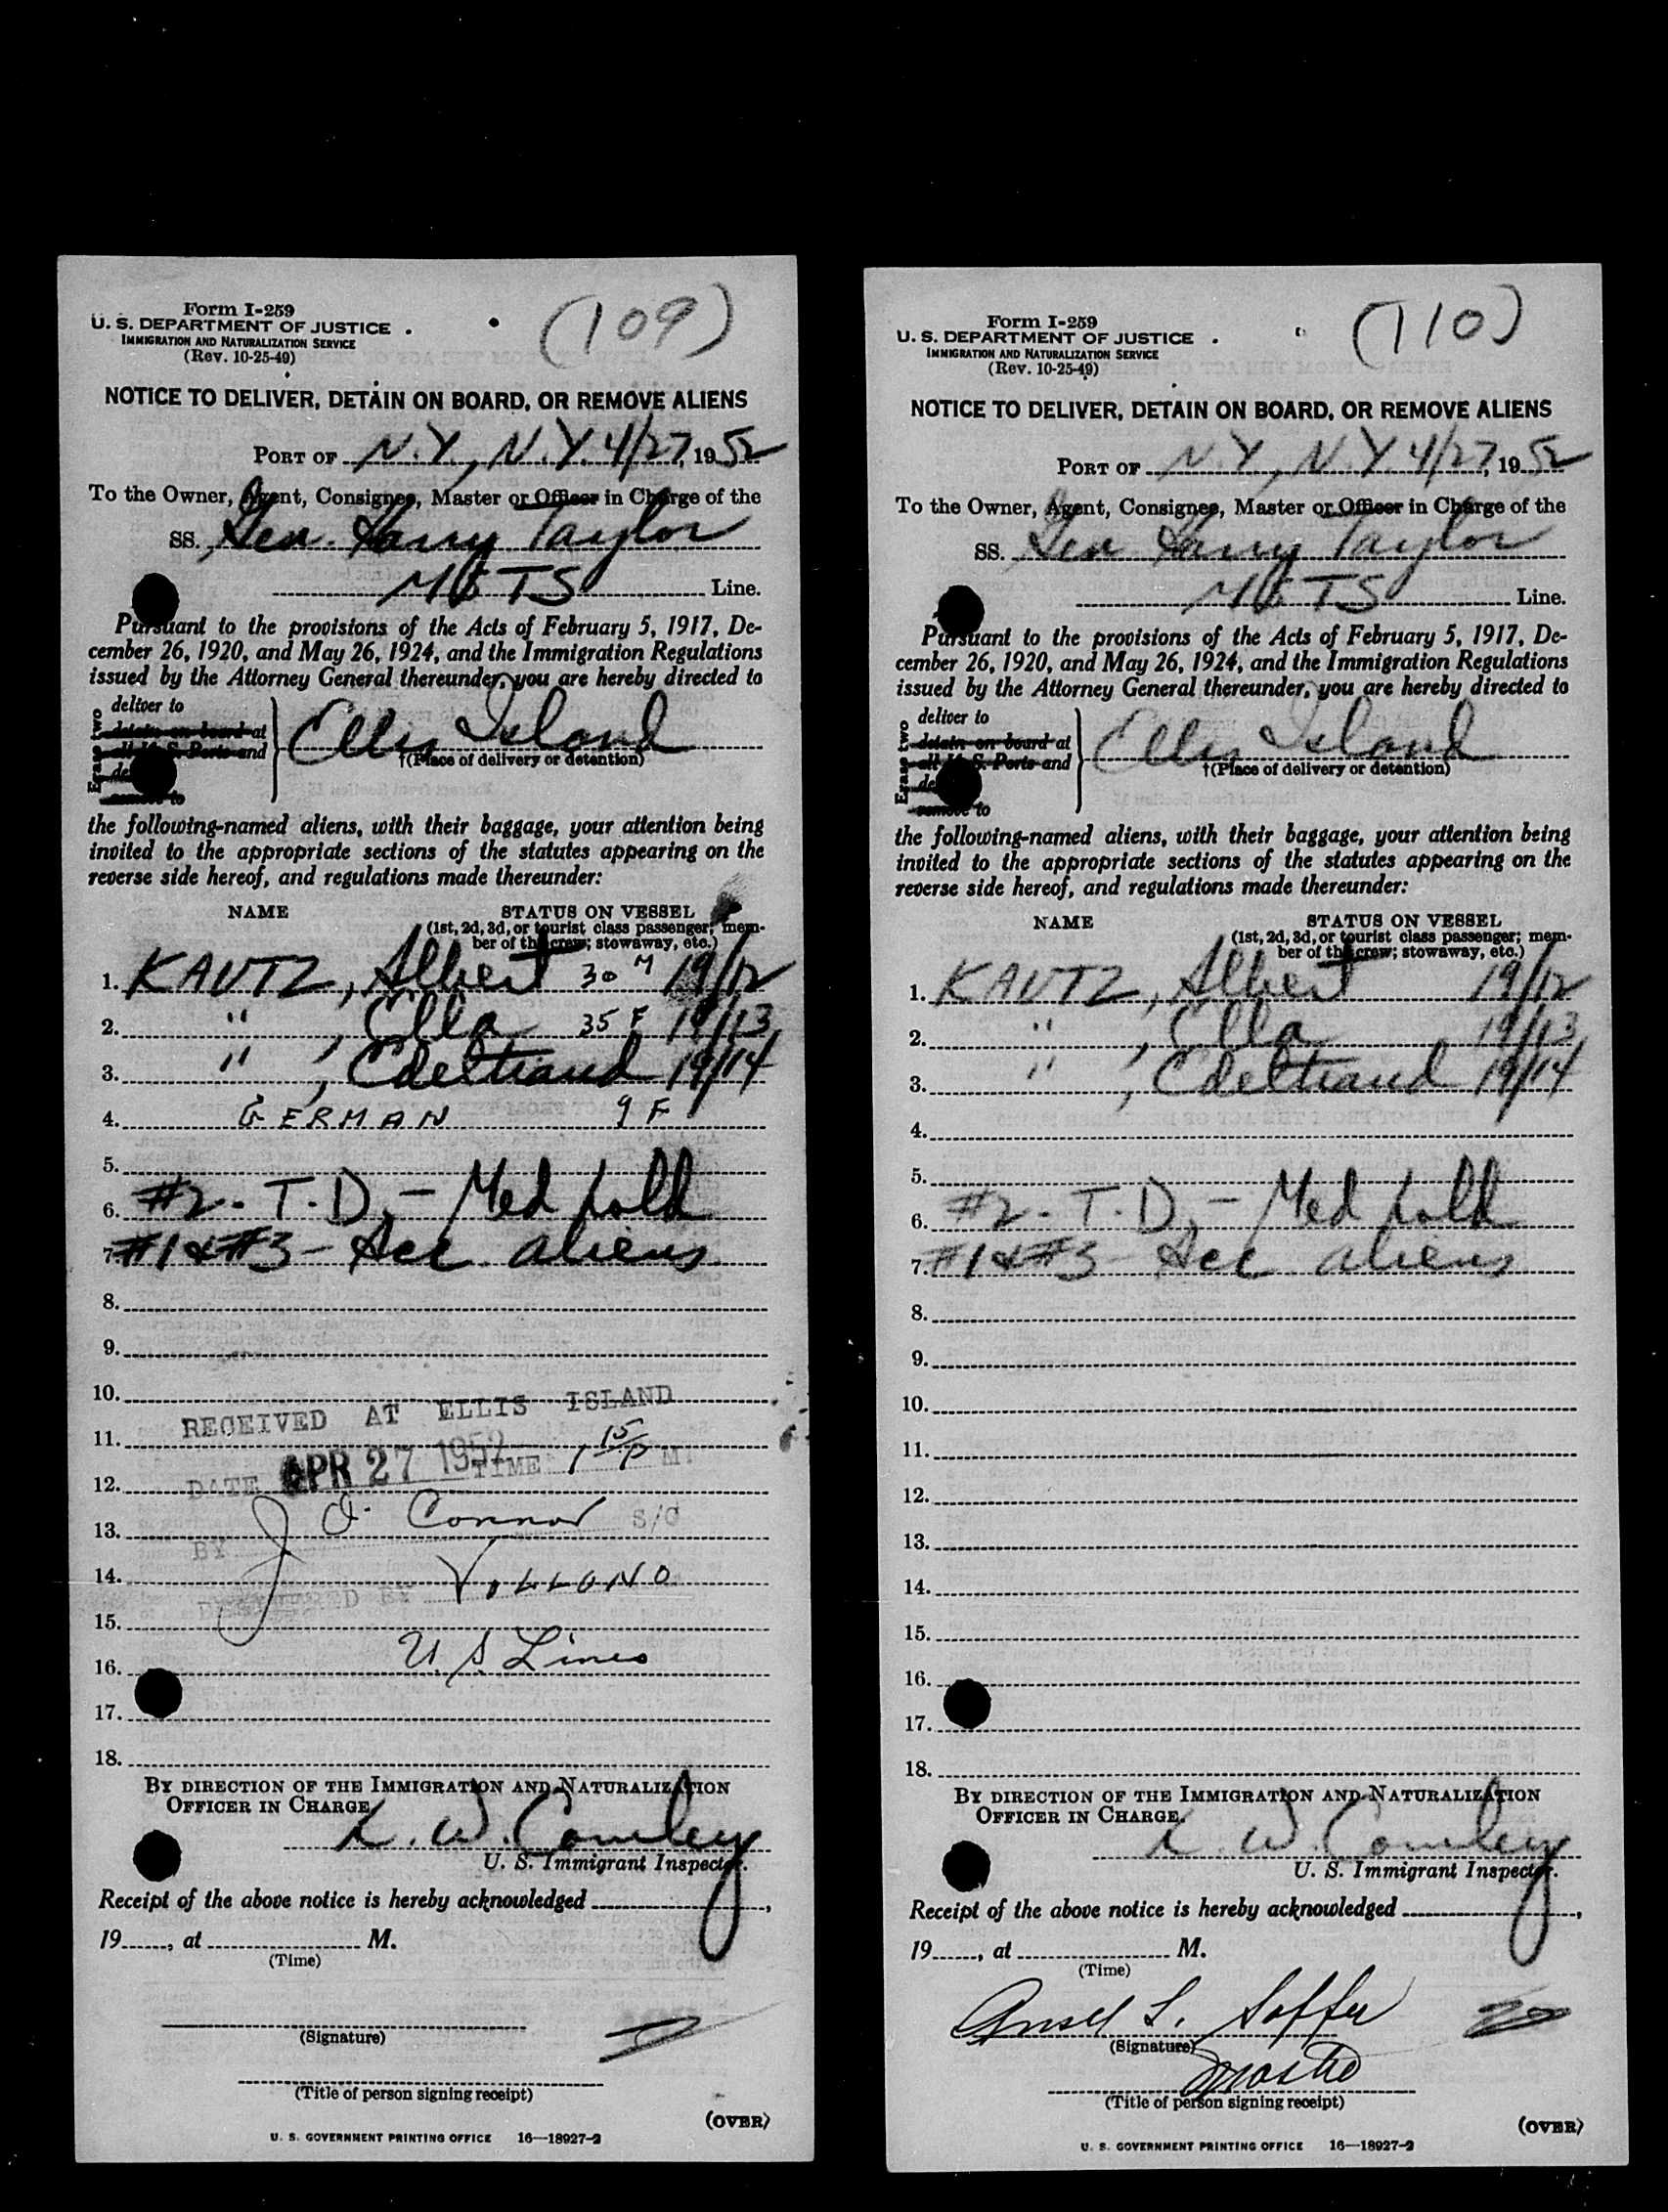 (109)
Form I-259
U. S. DEPARTMENT OF JUSTICE
IMMIGRATION AND NATURALIZATION SERVICE
(Rev. 10-25-49)
NOTICE TO DELIVER, DETAIN ON BOARD, OR REMOVE ALIENS
PORT OF N.Y., N.Y. 4/27, 1952
To the Owner, Agent, Consignee, Master or Officer in Charge of the
SS. Gen. Harry Taylor
MSTS Line.
Pursuant to the provisions of the Acts of February 5, 1917, De-
cember 26, 1920, and May 26, 1924, and the Immigration Regulations
issued by the Attorney General thereunder, you are hereby directed to
Erase two
deliver to
detain on board at
all U. S. Ports and
remove to
Ellis Island
†(Place of delivery or detention)
the following-named aliens, with their baggage, your attention being
invited to the appropriate sections of the statutes appearing on the
reverse side hereof, and regulations made thereunder:
NAME STATUS ON VESSEL
(1st, 2d, 3d, or tourist class passenger; mem-
ber of the crew; stowaway, etc.)
1. KAUTZ, Albert 30 M 19/12
2. " , Ella 35 F 19/13
3. " , Edeltraud 19/14
4. GERMAN 9 F
5.
6. #2 - T.D. - Med hold
7. #1 & #3 - Acc aliens
8.
9.
10.
RECEIVED AT ELLIS ISLAND
11.
12. DATE APR 27 1952 TIME 1 15 P M.
13. BY J O'Connor S/O
14.
DELIVERED BY
15.
16. U.S. Lines
17.
18.
BY DIRECTION OF THE IMMIGRATION AND NATURALIZATION
OFFICER IN CHARGE
U. S. Immigrant Inspector.
Receipt of the above notice is hereby acknowledged ,
19 , at M.
(Time)
(Signature)
(Title of person signing receipt)
(OVER)
U. S. GOVERNMENT PRINTING OFFICE 16—18927-2
(110)
Form I-259
U. S. DEPARTMENT OF JUSTICE
IMMIGRATION AND NATURALIZATION SERVICE
(Rev. 10-25-49)
NOTICE TO DELIVER, DETAIN ON BOARD, OR REMOVE ALIENS
PORT OF N.Y., N.Y. 4/27, 1952
To the Owner, Agent, Consignee, Master or Officer in Charge of the
SS. Gen Harry Taylor
MSTS Line.
Pursuant to the provisions of the Acts of February 5, 1917, De-
cember 26, 1920, and May 26, 1924, and the Immigration Regulations
issued by the Attorney General thereunder, you are hereby directed to
Erase two
deliver to
detain on board at
all U. S. Ports and
remove to
Ellis Island
†(Place of delivery or detention)
the following-named aliens, with their baggage, your attention being
invited to the appropriate sections of the statutes appearing on the
reverse side hereof, and regulations made thereunder:
NAME STATUS ON VESSEL
(1st, 2d, 3d, or tourist class passenger; mem-
ber of the crew; stowaway, etc.)
1. KAUTZ, Albert 19/12
2. " , Ella 19/13
3. " , Edeltraud 19/14
4.
5.
6. #2 - T.D. - Med hold
7. #1 & #3 - Acc aliens
8.
9.
10.
11.
12.
13.
14.
15.
16.
17.
18.
BY DIRECTION OF THE IMMIGRATION AND NATURALIZATION
OFFICER IN CHARGE.
U. S. Immigrant Inspector.
Receipt of the above notice is hereby acknowledged ,
19 , at M.
(Time)
Ansel L. Soffer
(Signature)
(Title of person signing receipt)
(OVER)
U. S. GOVERNMENT PRINTING OFFICE 16—18927-2